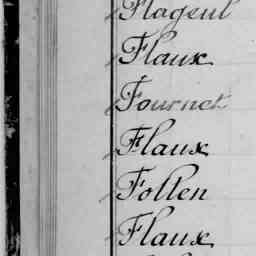 Flageul
Flaux
Fournet
Flaux
Follen
Flaux